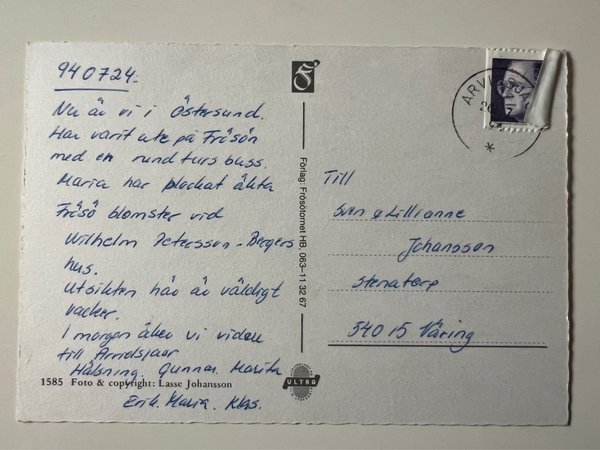 940724.
Nu är vi i Östersund.
Har varit ute på Frösön
med en rundturs buss.
Maria har plockat äkta
Frösö blomster vid
Wilhelm Petersson-Bergers
hus.
Utsikten här är väldigt
vacker.
I morgon åker vi vidare
till Arvidsjaur
Hälsning. Gunnar. Marita
Erik. Maria. Klas.
1585 Foto & copyright: Lasse Johansson
Förlag: Frösötornet HB, 063-11 32 67
ULTRA
ARVIDSJAUR
Till
Sven o Lillianne
Johansson
Stenatorp
54015 Väring